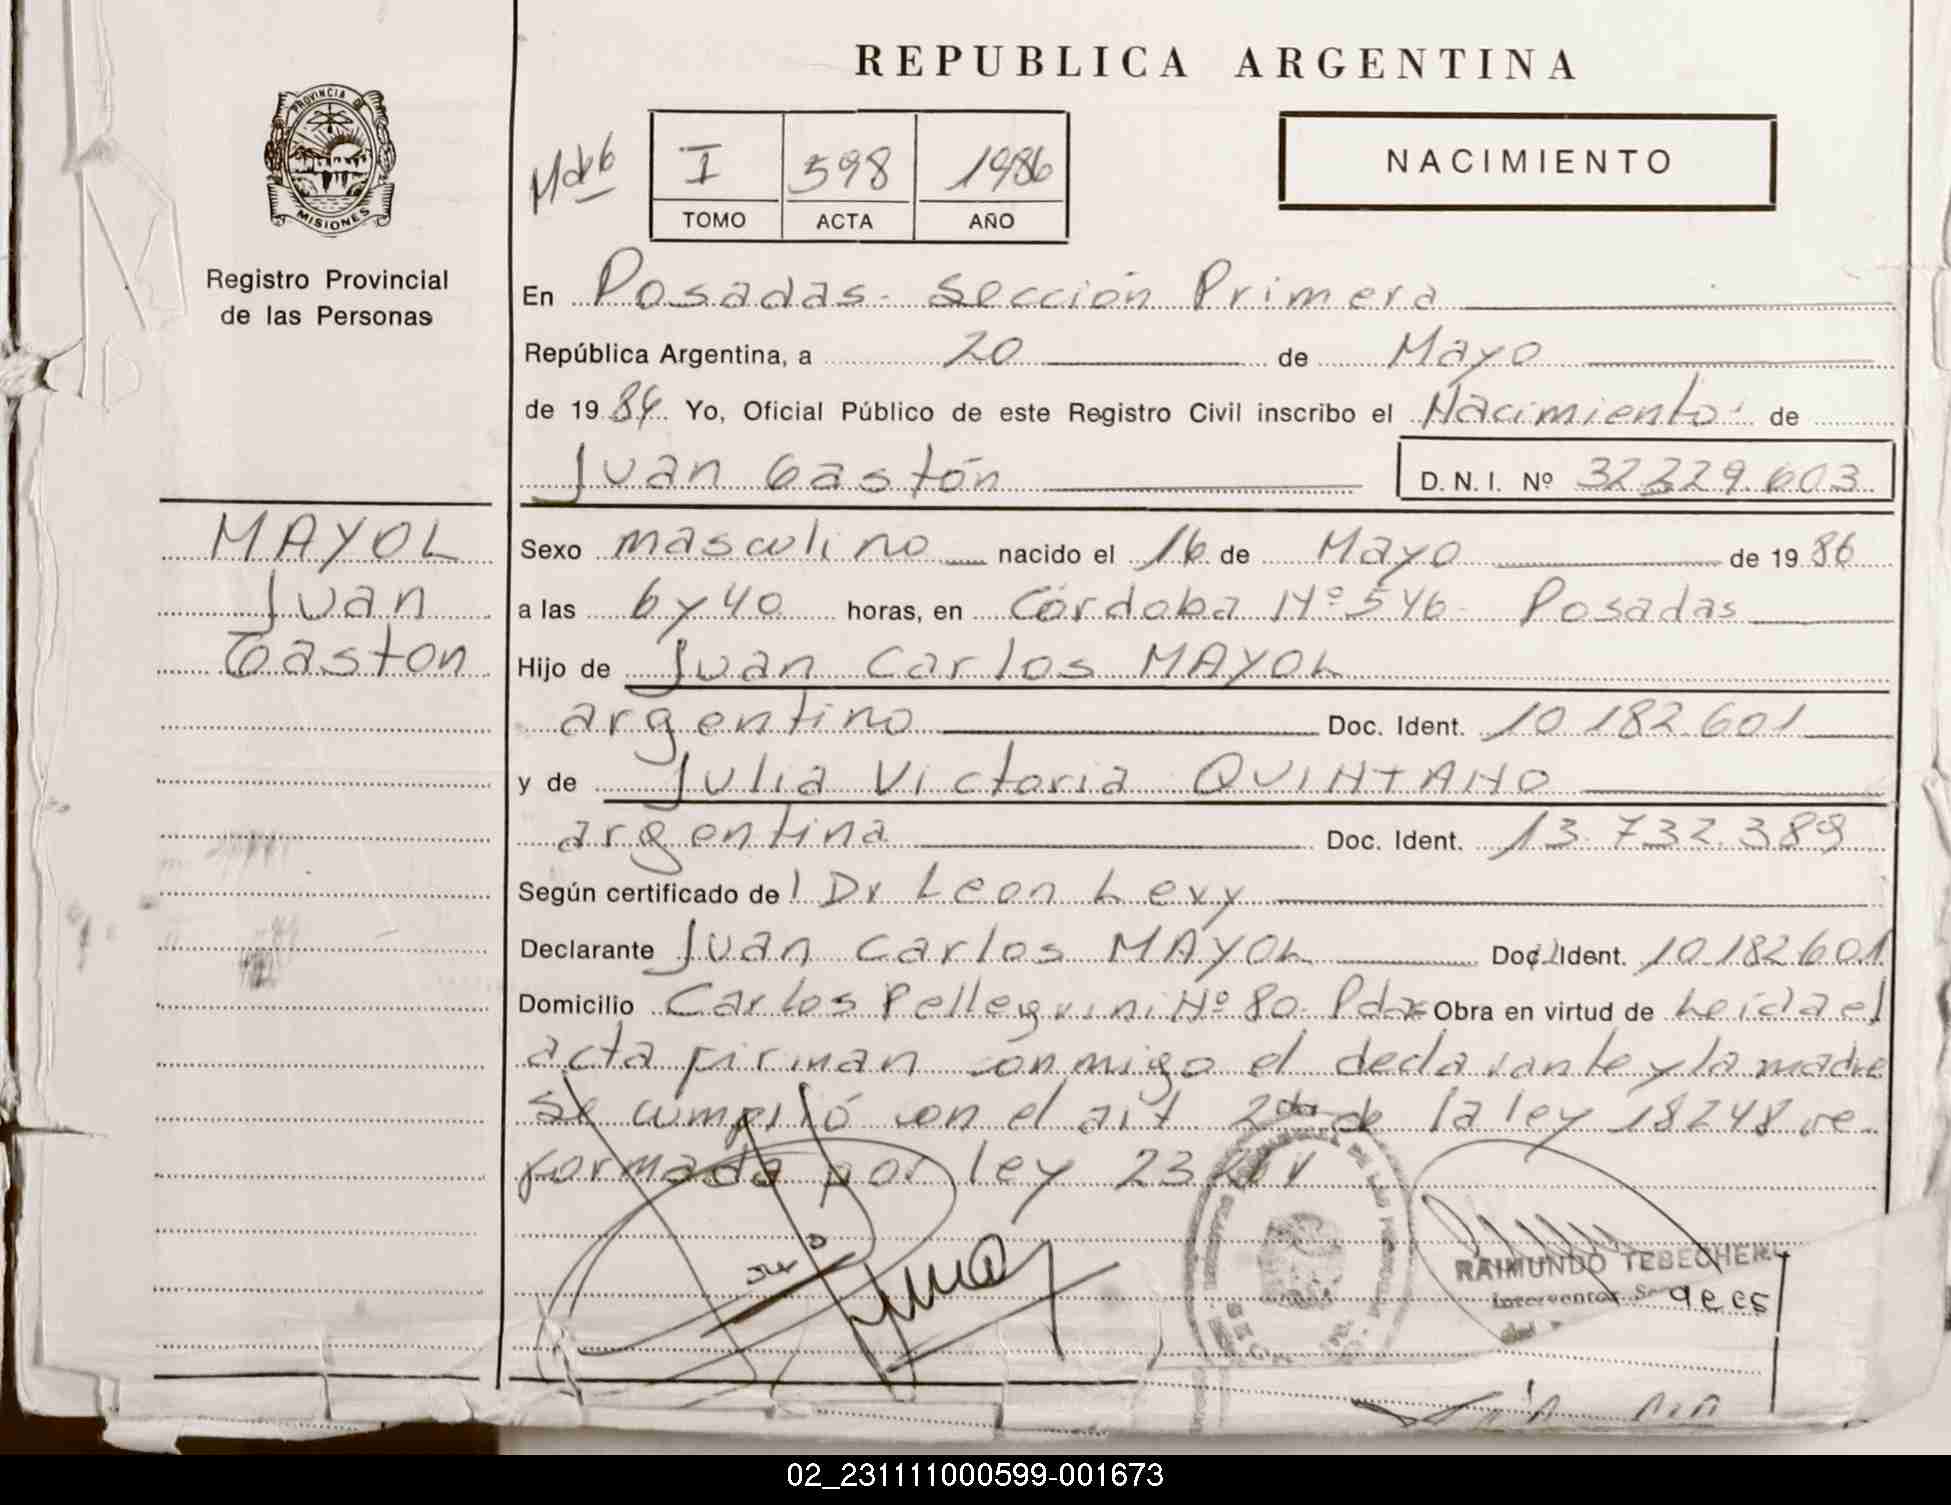 REPUBLICA ARGENTINA
PROVINCIA DE
MISIONES
Registro Provincial
de las Personas
I 598 1986
TOMO ACTA AÑO
NACIMIENTO
En Posadas - Sección Primera
República Argentina, a 20 de Mayo
de 19 86 Yo, Oficial Público de este Registro Civil inscribo el Nacimiento de
Juan Gastón D. N. I. Nº 32.329.603
MAYOL
Juan
Gaston
Sexo masculino nacido el 16 de Mayo de 19 86
a las 6 y 40 horas, en Córdoba Nº 546 - Posadas
Hijo de Juan Carlos MAYOL
argentino Doc. Ident. 10.182.601
y de Julia Victoria QUINTANO
argentina Doc. Ident. 13.732.389
Según certificado de l Dr Leon Levy
Declarante Juan Carlos MAYOL Doc. Ident. 10.182.601
Domicilio Carlos Pellegrini Nº 80. Pdas Obra en virtud de Leída el
acta firman conmigo el declarante y la madre
se cumplió con el art 2do de la ley 18248 re
formada por ley 23
RAIMUNDO TEBECHERY
Interventor
02_231111000599-001673